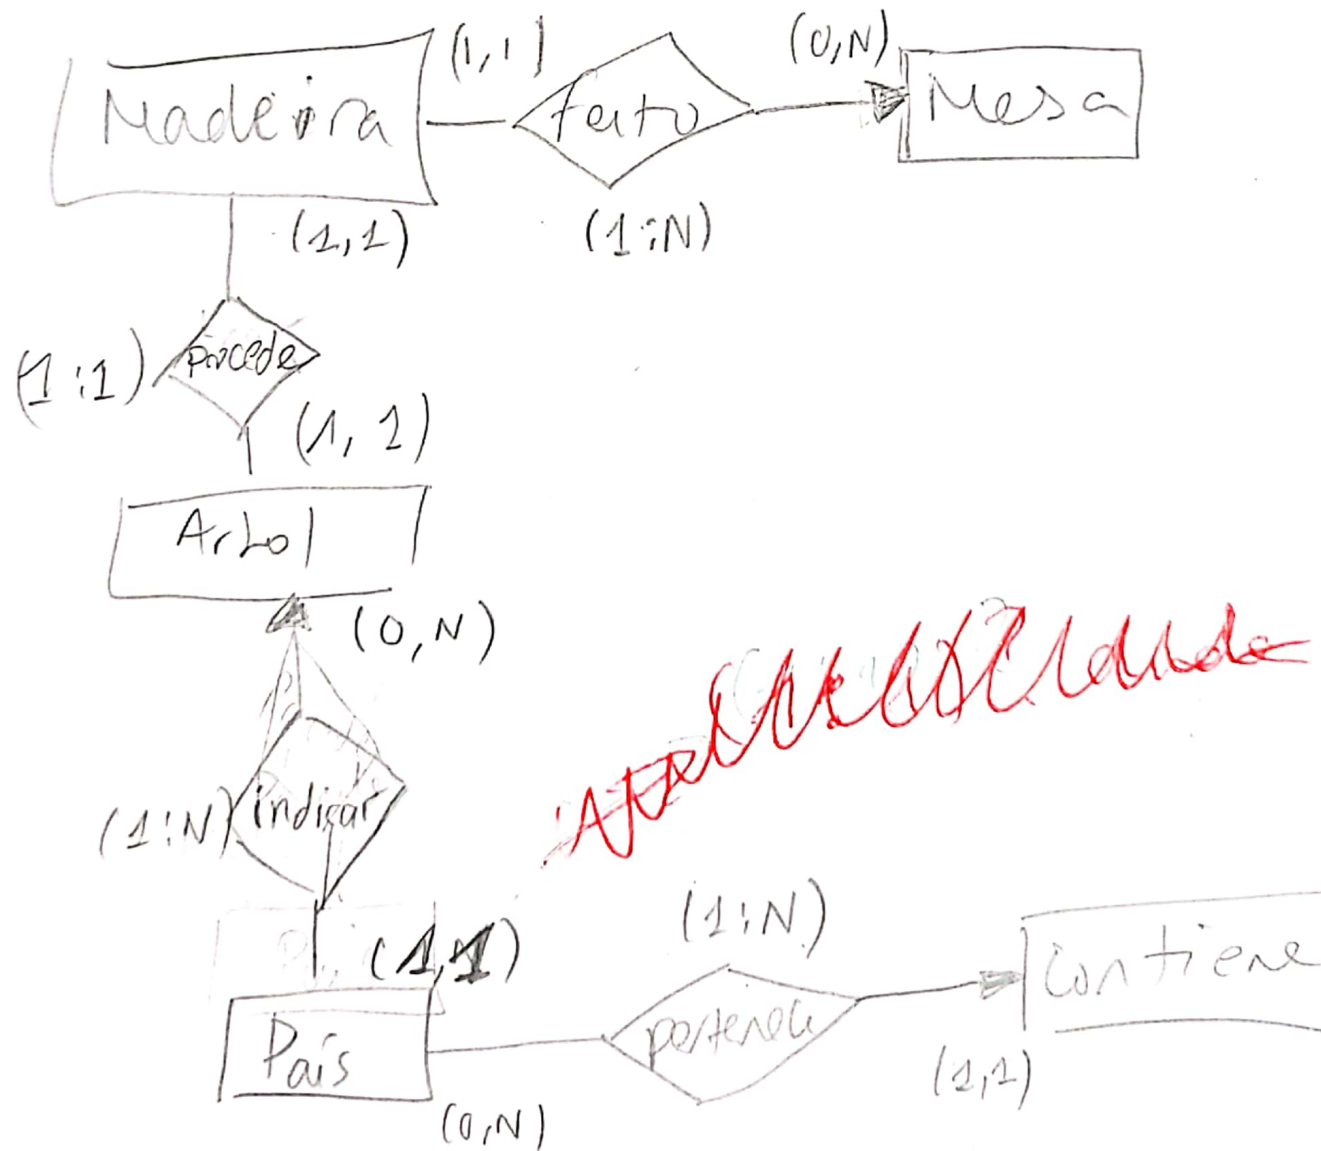 (1,1)
(0,N)
Madeira
feito
Mesa
(1,1)
(1:N)
(1:1)
procede
(1,1)
Arbol
(0,N)
(1:N)
indicar
(1:N)
(1,1)
Contiene
País
pertenece
(1,1)
(0,N)